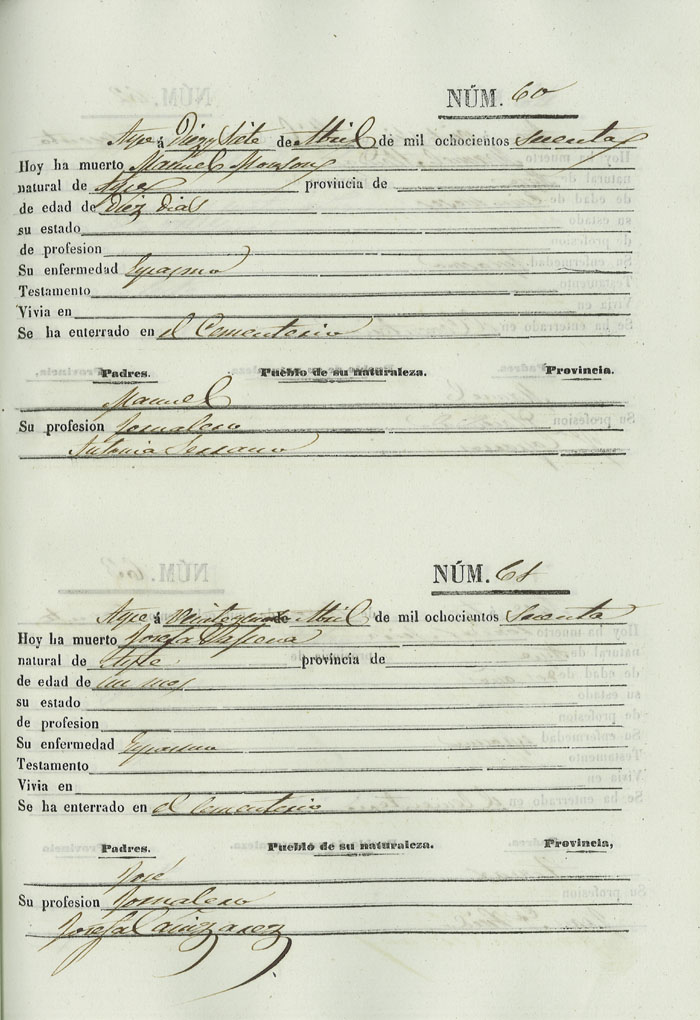 NÚM. 60
Aspe á Diez y Siete de Abril de mil ochocientos
Hoy ha muerto Manuel
natural de Aspe provincia de
de edad de Diez dias
su estado
de profesion
Su enfermedad Espasmo
Testamento
Vivia en
Se ha enterrado en el Cementerio
Padres. Pueblo de su naturaleza. Provincia.
Manuel
Su profesion Jornalero
Antonia Serrano
NÚM. 61
Aspe á de Abril de mil ochocientos
Hoy ha muerto Josefa
natural de Aspe provincia de
de edad de un mes
su estado
de profesion
Su enfermedad Espasmo
Testamento
Vivia en
Se ha enterrado en el Cementerio
Padres. Pueblo de su naturaleza. Provincia,
José
Su profesion Jornalero
Josefa Cañizarez